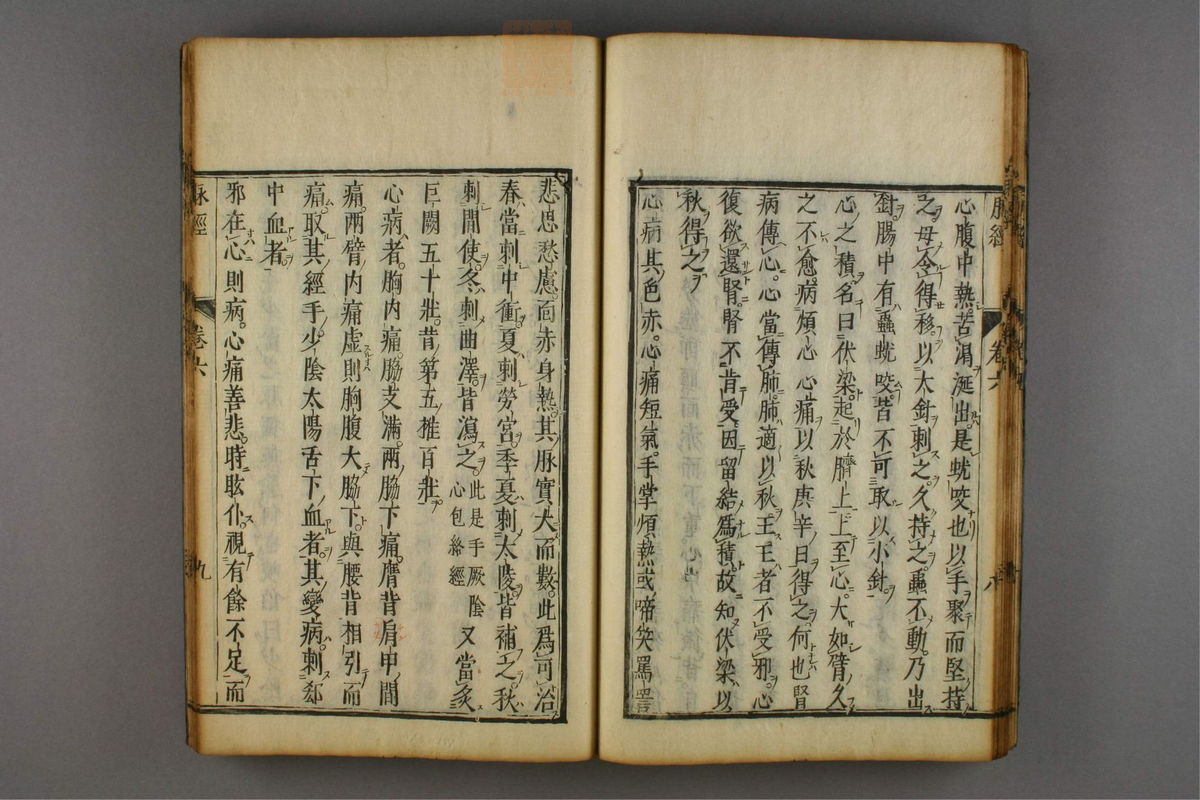 心腹中熱苦渴涎出是蚘咬也以手聚而堅持
之毋令得移以大針刺之久持之蟲不動乃出
針腸中有蟲蚘咬皆不可取以小針
心之積名曰伏梁起於臍上上至心大如臂久
之不愈病煩心心痛以秋庚辛日得之何也腎
病傳心心當傳肺肺適以秋王王者不受邪心
復欲還腎腎不肯受因留結爲積故知伏梁以
秋得之
心病其色赤心痛短氣手掌煩熱或啼笑罵詈
脉經 卷六 八
悲思愁慮面赤身熱其脉實大而數此爲可治
春當刺中衝夏刺勞宮季夏刺太陵皆補之秋
刺間使冬刺曲澤皆瀉之此是手厥陰心包絡經又當灸
巨闕五十壯背第五椎百壯
心病者胸內痛脇支滿兩脇下痛膺背肩甲間
痛兩臂內痛虛則胸腹大脇下與腰背相引而
痛取其經手少陰太陽舌下血者其變病刺郄
中血者
邪在心則病心痛善悲時眩仆視有餘不足而
脉經 卷六 九